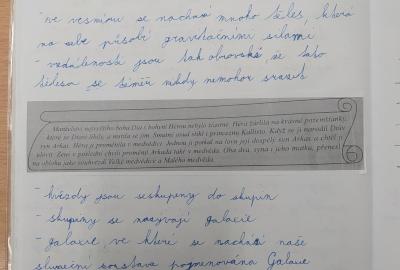 - ve vesmíru se nachází mnoho těles, která
na sebe působí gravitačními silami
- vzdálenosti jsou tak obrovské, že tato
tělesa se téměř nikdy nemohou srazit
Manželství nejvyššího boha Dia s bohyní Hérou nebylo šťastné. Héra žárlila na krásné pozemšťanky,
které se Diovi líbily, a mstila se jim. Smutný osud stihl i princeznu Kallistó. Když se jí narodil Diův
syn Arkas, Héra ji proměnila v medvědici. Jednou ji potkal na lovu její dospělý syn Arkas a chtěl ji
ulovit. Zeus v poslední chvíli proměnil Arkada také v medvěda. Oba dva, syna i jeho matku, přenesl
na oblohu jako souhvězdí Velké medvědice a Malého medvěda.
- hvězdy jsou seskupeny do skupin
- skupiny se nazývají galaxie
- galaxie, ve které se nachází naše
sluneční soustava pojmenována Galaxie